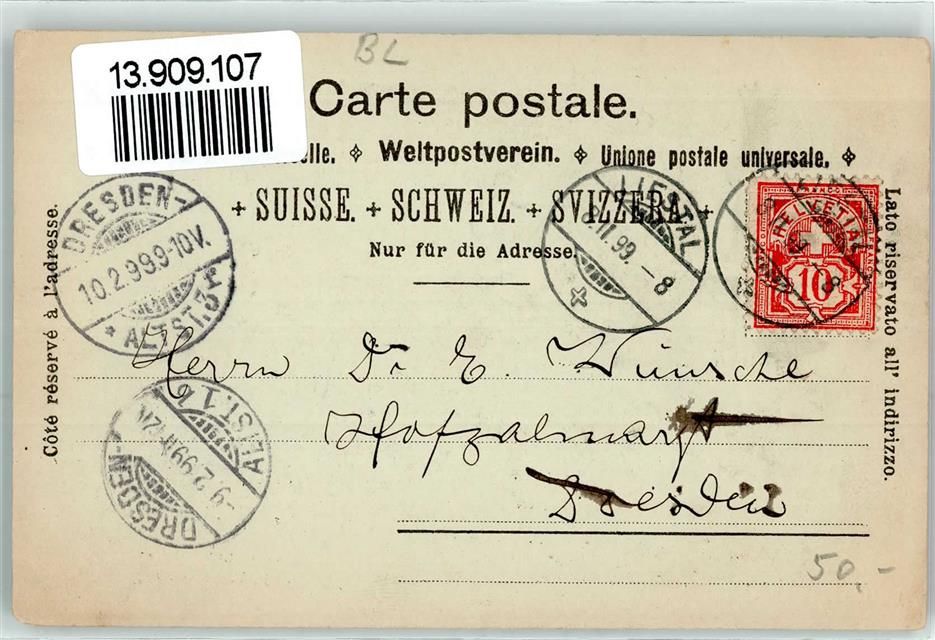 BL
13.909.107
Carte postale.
Weltpostverein. Unione postale universale.
+ SUISSE. + SCHWEIZ. + SVIZZERA. +
Nur für die Adresse.
Côté réservé à l'adresse.
Lato riservato all' indirizzo.
DRESDEN-
10.2.99.9-10V.
* ALTST. 3 r
LIESTAL
II.99.-8
HELVETIA
FRANCO
10
Herrn Dr E. Wünsche
Hofzahnarzt
Dresden
ALTST. 1
9.2.99
DRESDEN-
50,-